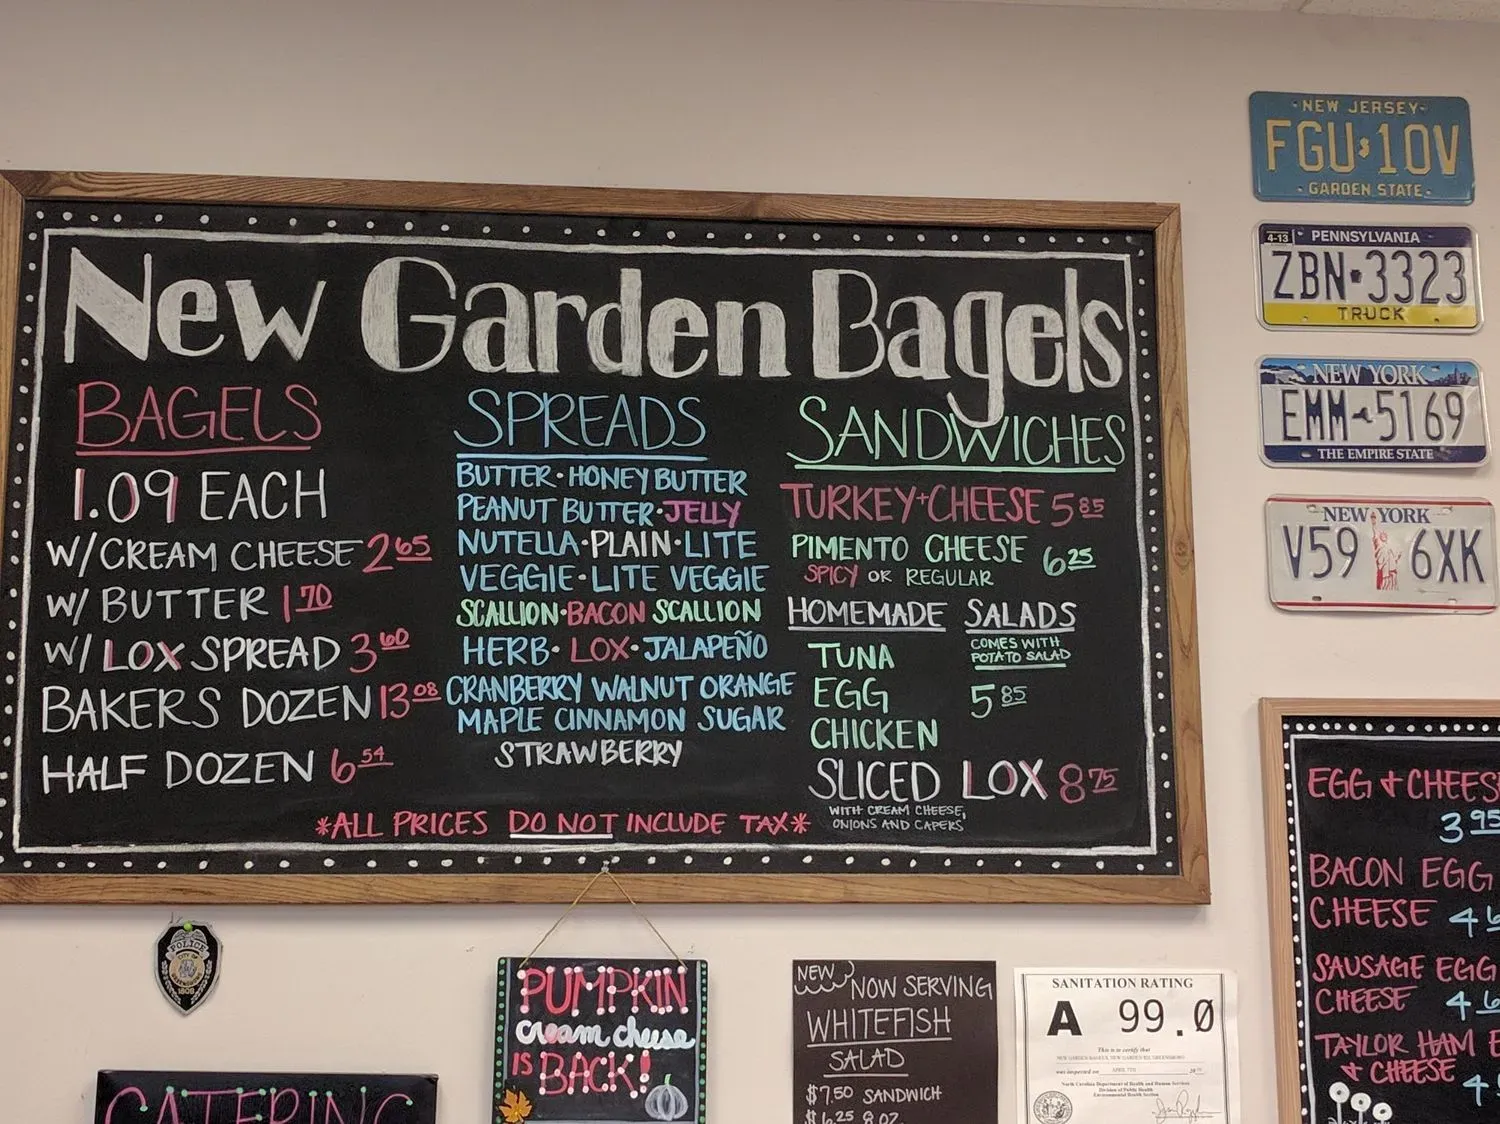 New Garden Bagels
BAGELS
1.09 EACH
W/ CREAM CHEESE 2 65
W/ BUTTER 1 70
W/ LOX SPREAD 3 60
BAKERS DOZEN 13 08
HALF DOZEN 6 54
SPREADS
BUTTER · HONEY BUTTER
PEANUT BUTTER · JELLY
NUTELLA · PLAIN · LITE
VEGGIE · LITE VEGGIE
SCALLION · BACON SCALLION
HERB · LOX · JALAPEÑO
CRANBERRY WALNUT ORANGE
MAPLE CINNAMON SUGAR
STRAWBERRY
SANDWICHES
TURKEY + CHEESE 5 85
PIMENTO CHEESE 6 25
SPICY OR REGULAR
HOMEMADE SALADS
COMES WITH
POTATO SALAD
TUNA
EGG 5 85
CHICKEN
SLICED LOX 8 75
WITH CREAM CHEESE,
ONIONS AND CAPERS
*ALL PRICES DO NOT INCLUDE TAX*
NEW JERSEY
FGU 10V
GARDEN STATE
4-13 PENNSYLVANIA
ZBN 3323
TRUCK
NEW YORK
EMM 5169
THE EMPIRE STATE
NEW YORK
V59 6XK
EGG + CHEESE
3 95
BACON EGG
CHEESE 4
SAUSAGE EGG
CHEESE 4
TAYLOR HAM
+ CHEESE 4
POLICE
CITY OF
1808
CATERING
PUMPKIN
cream cheese
is BACK!
NEW
NOW SERVING
WHITEFISH
SALAD
$7.50 SANDWICH
$6.25 8 OZ
SANITATION RATING
A 99.0
This is to certify that
NEW GARDEN BAGELS, NEW GARDEN RD, GREENSBORO
was inspected on APRIL 7TH 20
North Carolina Department of Health and Human Services
Division of Public Health
Environmental Health Section